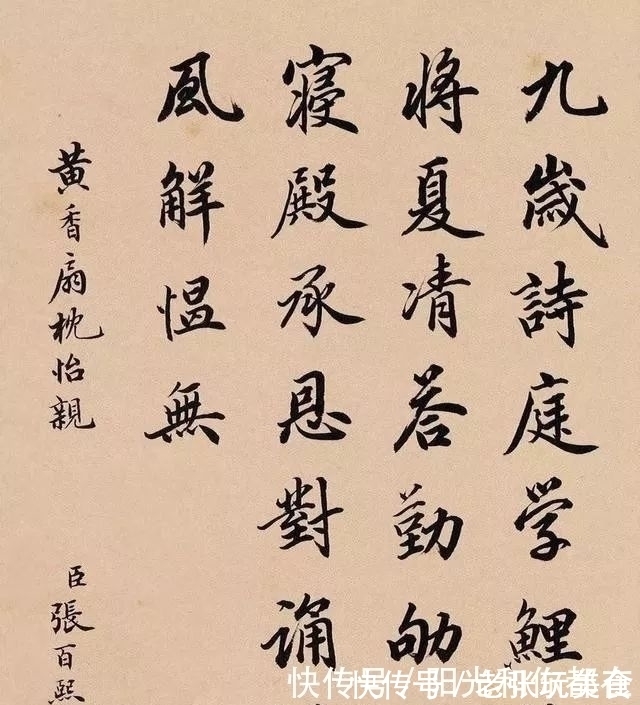 九歲詩庭学鯉
将夏凊荅勤劬
寢殿承恩對誦
風解愠無
黄香扇枕怡親
臣張百熙
快传号